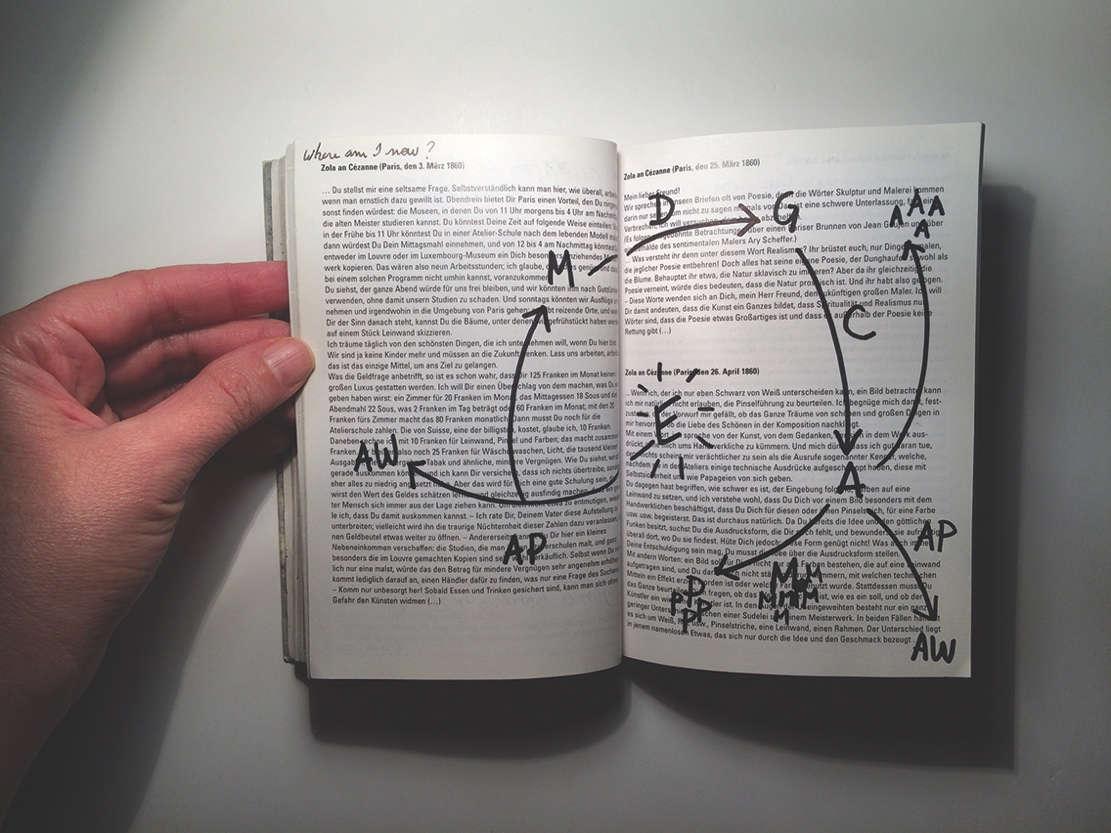 Where am I now?
Zola an Cézanne (Paris, den 3. März 1860)
... Du stellst mir eine seltsame Frage. Selbstverständlich kann man hier, wie überall,
wenn man ernstlich dazu gewillt ist. Obendrein bietet Dir Paris einen Vorteil, den Du
sonst finden würdest: die Museen, in denen Du von 11 Uhr morgens bis 4 Uhr am
die alten Meister studieren kannst. Du könntest Deine Zeit auf folgende Weise einteilen:
in der Frühe bis 11 Uhr könntest Du in einer Atelier-Schule nach dem lebenden Modell
dann würdest Du Dein Mittagsmahl einnehmen, und von 12 bis 4 am Nachmittag
entweder im Louvre oder im Luxembourg-Museum ein Dich
werk kopieren. Das wären also neun Arbeitsstunden; ich glaube,
bei einem solchen Programm nicht umhin kannst, voranzukommen.
Du siehst, der ganze Abend würde für uns frei bleiben, und wir könnten ihn nach
verwenden, ohne damit unsern Studien zu schaden. Und sonntags könnten wir Ausflüge
nehmen und irgendwohin in die Umgebung von Paris gehen; reizende Orte, und
Dir der Sinn danach steht, kannst Du die Bäume, unter denen gefrühstückt haben
auf einem Stück Leinwand skizzieren.
Ich träume täglich von den schönsten Dingen, die ich unternehmen will, wenn Du hier
Wir sind ja keine Kinder mehr und müssen an die Zukunft denken. Lass uns arbeiten,
ist das einzige Mittel, um ans Ziel zu gelangen.
Was die Geldfrage anbetrifft, so ist es schon wahr, dass Dir 125 Franken im Monat keinen
großen Luxus gestatten werden. Ich will Dir einen Überschlag von dem machen, was Du
geben haben wirst: ein Zimmer für 20 Franken im Monat, das Mittagessen 18 Sous und das
Abendmahl 22 Sous, was 2 Franken im Tag beträgt oder 60 Franken im Monat; mit den 20
Franken fürs Zimmer macht das 80 Franken monatlich. Dann musst Du noch für die
Atelierschule zahlen. Die von Suisse, eine der billigsten, kostet, glaube ich, 10 Franken.
Daneben rechne ich mit 10 Franken für Leinwand, Pinsel und Farben; das macht zusammen
Franken also noch 25 Franken für Wäschewaschen, Licht, die tausend kleinen
Ausgaben Tabak und ähnliche, mindere Vergnügen. Wie Du siehst,
gerade auskommen und ich kann Dir versichern, dass ich nichts übertreibe,
eher alles zu niedrig Aber das wird für Dich eine gute Schulung sein,
wirst den Wert des Geldes schätzen und gleichzeitig ausfindig machen,
ter Mensch sich immer aus der Lage ziehen kann. zu entmutigen,
le ich, dass Du damit auskommen kannst. – Ich rate Dir, Deinem Vater diese Aufstellung
unterbreiten; vielleicht wird ihn die traurige Nüchternheit dieser Zahlen dazu veranlassen,
nen Geldbeutel etwas weiter zu öffnen. – Andererseits kannst Du Dir hier ein kleines
Nebeneinkommen verschaffen: die Studien, die man in den Malschulen malt, und ganz
besonders die im Louvre gemachten Kopien sind sehr verkäuflich. Selbst wenn Du
ich nur eine malst, würde das den Betrag für mindere Vergnügen sehr angenehm erhöhen.
kommt lediglich darauf an, einen Händler dafür zu finden, was nur eine Frage des Suchens
– Komm nur unbesorgt her! Sobald Essen und Trinken gesichert sind, kann man sich ohne
Gefahr den Künsten widmen (...)
M
AW
AP
Zola an Cézanne (Paris, den 25. März 1860)
Mein lieber Freund!
Wir sprechen in unseren Briefen oft von Poesie, doch die Wörter Skulptur und Malerei kommen
darin nur selten, um nicht zu sagen niemals vor. Das ist eine schwere Unterlassung, fast ein
Verbrechen;
(Es folgen Betrachtungen über einen Pariser Brunnen von Jean Goujon und über
Gemälde des sentimentalen Malers Ary Scheffer.)
... Was versteht ihr denn unter diesem Wort Realismus? Ihr brüstet euch, nur Dinge zu malen,
die jeglicher Poesie entbehren! Doch alles hat seine eigene Poesie, der Dunghaufen sowohl als
die Blume. Behauptet ihr etwa, die Natur sklavisch zu imitieren? Aber da ihr gleichzeitig die
Poesie verneint, würde dies bedeuten, dass die Natur prosaisch ist. Und ihr habt also gelogen.
– Diese Worte wenden sich an Dich, mein Herr Freund, den zukünftigen großen Maler. Ich will
Dir damit andeuten, dass die Kunst ein Ganzes bildet, dass Spiritualität und Realismus nur
Wörter sind, dass die Poesie etwas Großartiges ist und dass es außerhalb der Poesie keine
Rettung gibt (...)
Zola an Cézanne (Paris, den 26. April 1860)
... Wenn ich, der ich nur eben Schwarz von Weiß unterscheiden kann, ein Bild betrachte, kann
ich mir natürlich nicht erlauben, die Pinselführung zu beurteilen. Ich begnüge mich damit, fest-
zustellen, ob der Vorwurf mir gefällt, ob das Ganze Träume von schönen und großen Dingen in
mir hervorruft, ob die Liebe des Schönen in der Komposition
Mit einem Wort, ich spreche von der Kunst, von dem Gedanken, der in dem Werk aus-
drückt, ohne mich ums Handwerkliche zu kümmern. Und mich dünkt, dass ich gut daran tue,
nichts scheint mir verächtlicher zu sein als die Ausrufe sogenannter Kenner, welche,
nachdem sie in den Ateliers einige technische Ausdrücke aufgeschnappt haben, diese mit
Selbstsicherheit und wie Papageien von sich geben.
Du dagegen hast begriffen, wie schwer es ist, der Eingebung folgend, Farben auf eine
Leinwand zu setzen, und ich verstehe wohl, dass Du Dich vor einem Bild besonders mit dem
Handwerklichen beschäftigst, dass Du Dich für diesen oder jenen Pinselstrich, für eine Farbe
usw. usw. begeisterst. Das ist durchaus natürlich. Da Du bereits die Idee und den göttlichen
Funken besitzt, suchst Du die Ausdrucksform, die Dir noch fehlt, und bewunderst sie aufrichtig
überall dort, wo Du sie findest. Hüte Dich jedoch: diese Form genügt nicht! Was auch immer
Deine Entschuldigung sein mag, Du musst die Idee über die Ausdrucksform stellen.
Mit anderen Worten: ein Bild soll für Dich nicht nur aus Farben bestehen, die auf eine Leinwand
aufgetragen sind, und Du darfst Dich nicht ständig darum kümmern, mit welchen technischen
Mitteln ein Effekt erzielt worden ist oder welche Farben benutzt wurden. Stattdessen musst Du
das Ganze betrachten und Dich fragen, ob das Werk ist, wie es ein soll, und ob der
Künstler ein wirklicher Künstler ist. In den Augen des Uneingeweihten besteht nur ein ganz
geringer Unterschied zwischen einer Sudelei und einem Meisterwerk. In beiden Fällen handelt
es sich um Weiß, Rot usw., Pinselstriche, eine Leinwand, einen Rahmen. Der Unterschied liegt
in jenem namenlosen Etwas, das sich nur durch die Idee und den Geschmack bezeugt
D
G
A
A A A
A
C
E
A
AP
P
P P P
P
M M M
M M M M
M
AW